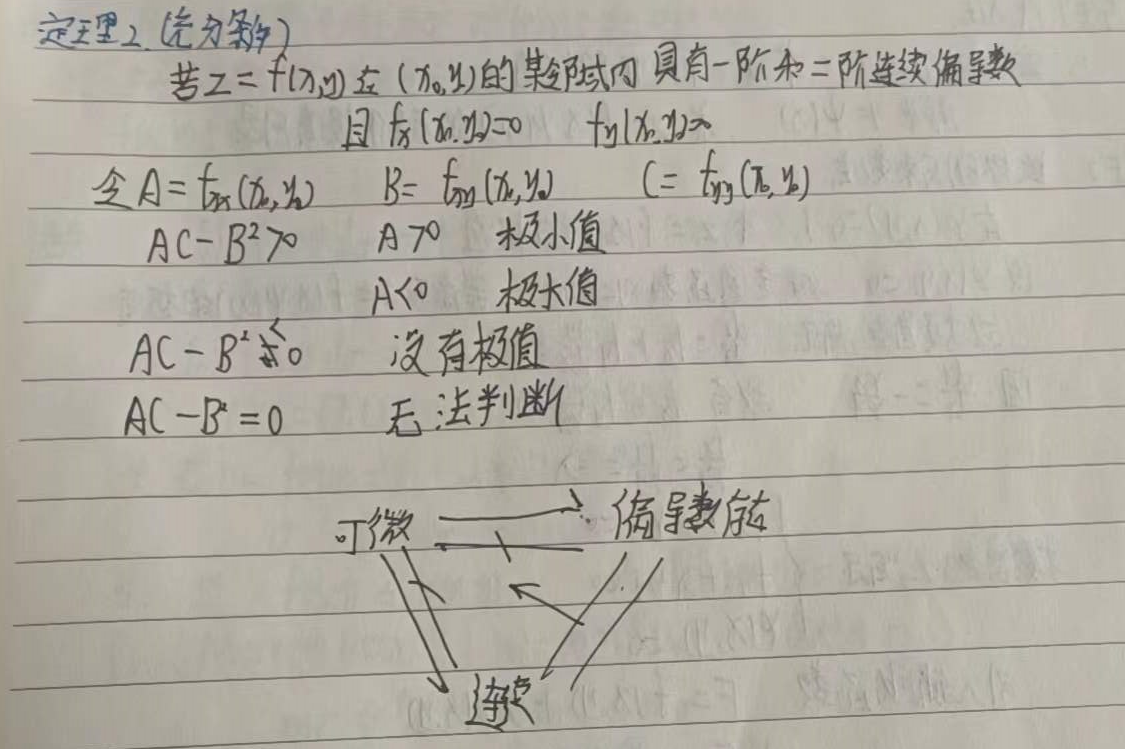 定理2 (充分条件)
若 Z = f(x,y) 在 (x₀,y₀) 的某邻域内 具有一阶和二阶连续偏导数
且 fx(x₀,y₀)=0 fy(x₀,y₀)=0
令 A = fxx(x₀,y₀) B = fxy(x₀,y₀) C = fyy(x₀,y₀)
AC - B² > 0 A > 0 极小值
A < 0 极大值
AC - B² < 0 没有极值
AC - B² = 0 无法判断
可微 偏导数存在
连续